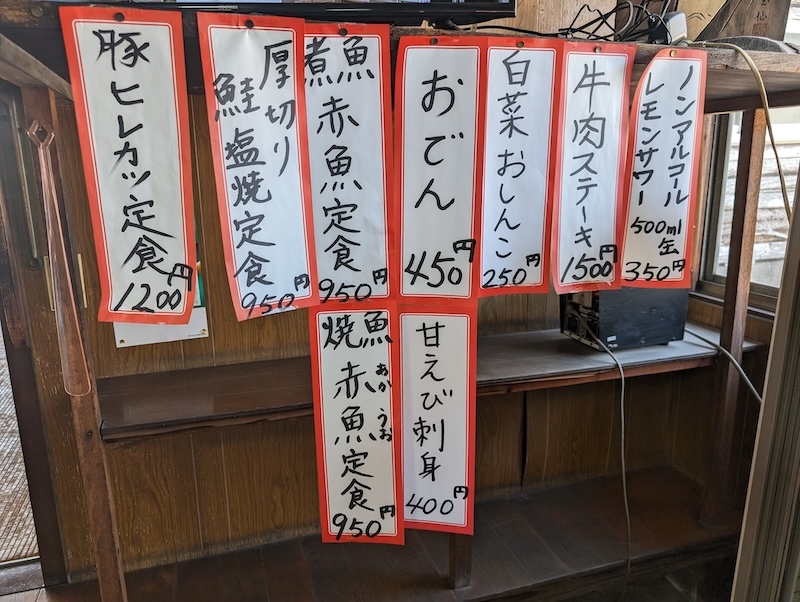 豚ヒレカツ定食
1200円
厚切り
鮭塩焼定食
950円
煮魚
赤魚定食
950円
おでん
450円
白菜おしんこ
250円
牛肉ステーキ
1500円
ノンアルコール
レモンサワー
500ml
缶
350円
焼魚
赤魚定食
あかうお
950円
甘えび刺身
400円